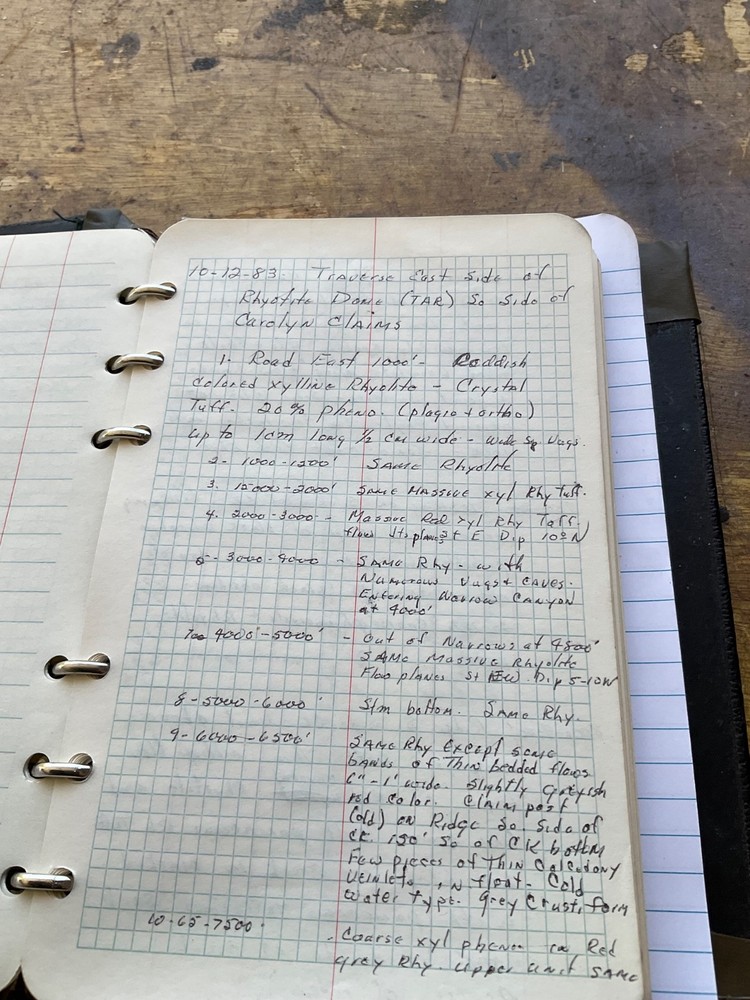 10-12-83. Traverse East Side of
Rhyolite Dome (TAR) So Side of
Carolyn Claims
1. Road East 1000' - Reddish
colored xylline Rhyolite - Crystal
Tuff. 20% pheno. (plagio + ortho)
up to 1cm long 1/2 cm wide - vugs.
2- 1000-1500' SAME Rhyolite
3. 15000-2000' SAME MASSIVE xyl Rhy Tuff.
4. 2000-3000 - Massive Red xyl Rhy Tuff.
flow planes E Dip 10° N
5- 3000-4000 - SAME Rhy - with
Numerous Vugs + CAVES.
Entering Narrow Canyon
at 4000'
4000'-5000' - Out of Narrows at 4800'
SAME Massive Rhyolite
Flow planes St EW. Dip 5-10N
8-5000-6000' Stm bottom. SAME Rhy.
9-6000-6500' SAME Rhy Except some
bands of Thin bedded flows
6"-1' wide. Slightly greyish
red color. Claim post
(old) on Ridge So. Side of
CK. 150' So of CK bottom
Few pieces of Thin Calcedony
Veinlets in float- Cold
Water type. Grey Crust, form
10-65-7500' - Coarse xyl pheno in Red
grey Rhy. Upper unit SAME